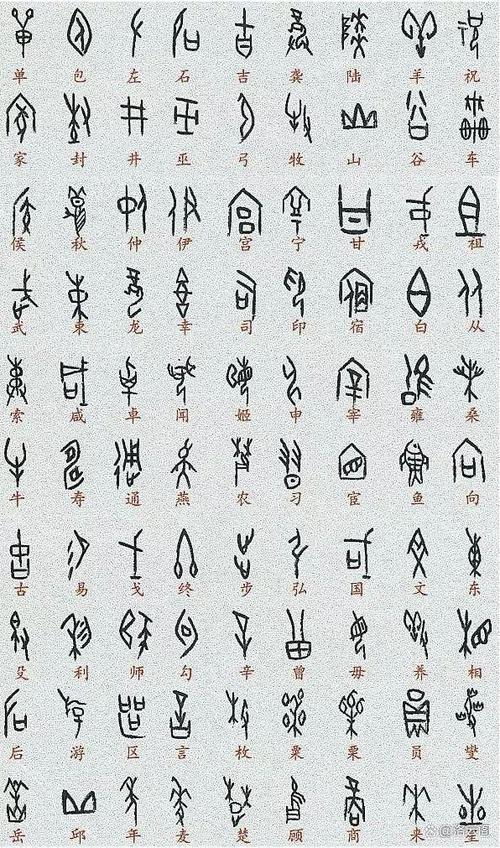 单 包 左 石 吉 龚 陆 羊 祝
家 封 井 巫 弓 牧 山 谷 车
侯 秋 仲 伊 宫 宁 甘 戎 祖
武 束 龙 幸 司 印 宿 白 从
索 咸 卓 闻 姬 申 宰 雍 桑
牛 寿 通 燕 农 习 宦 鱼 向
古 易 戈 终 步 弘 国 文 东
殳 利 师 勾 辛 曾 毋 养 相
后 游 区 言 枚 粟 栗 员 燮
岳 邱 年 麦 楚 顾 商 来